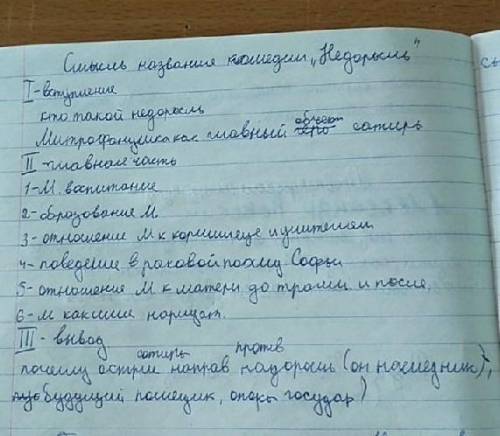 Смысль названия комедии „Недоросль"
I - вступление
кто такой недоросль
Митрофанушка как главный объект сатиры
II - главная часть
1 - М. воспитание
2 - образование М.
3 - отношение М к кормилице и учителям
4 - поведение в роковой Софьи
5 - отношение М к матери до и после.
6 - М как имя нарицат.
III - вывод
сатиры против
почему острие направ (он наследник),
будущий помещик, опоры государ)